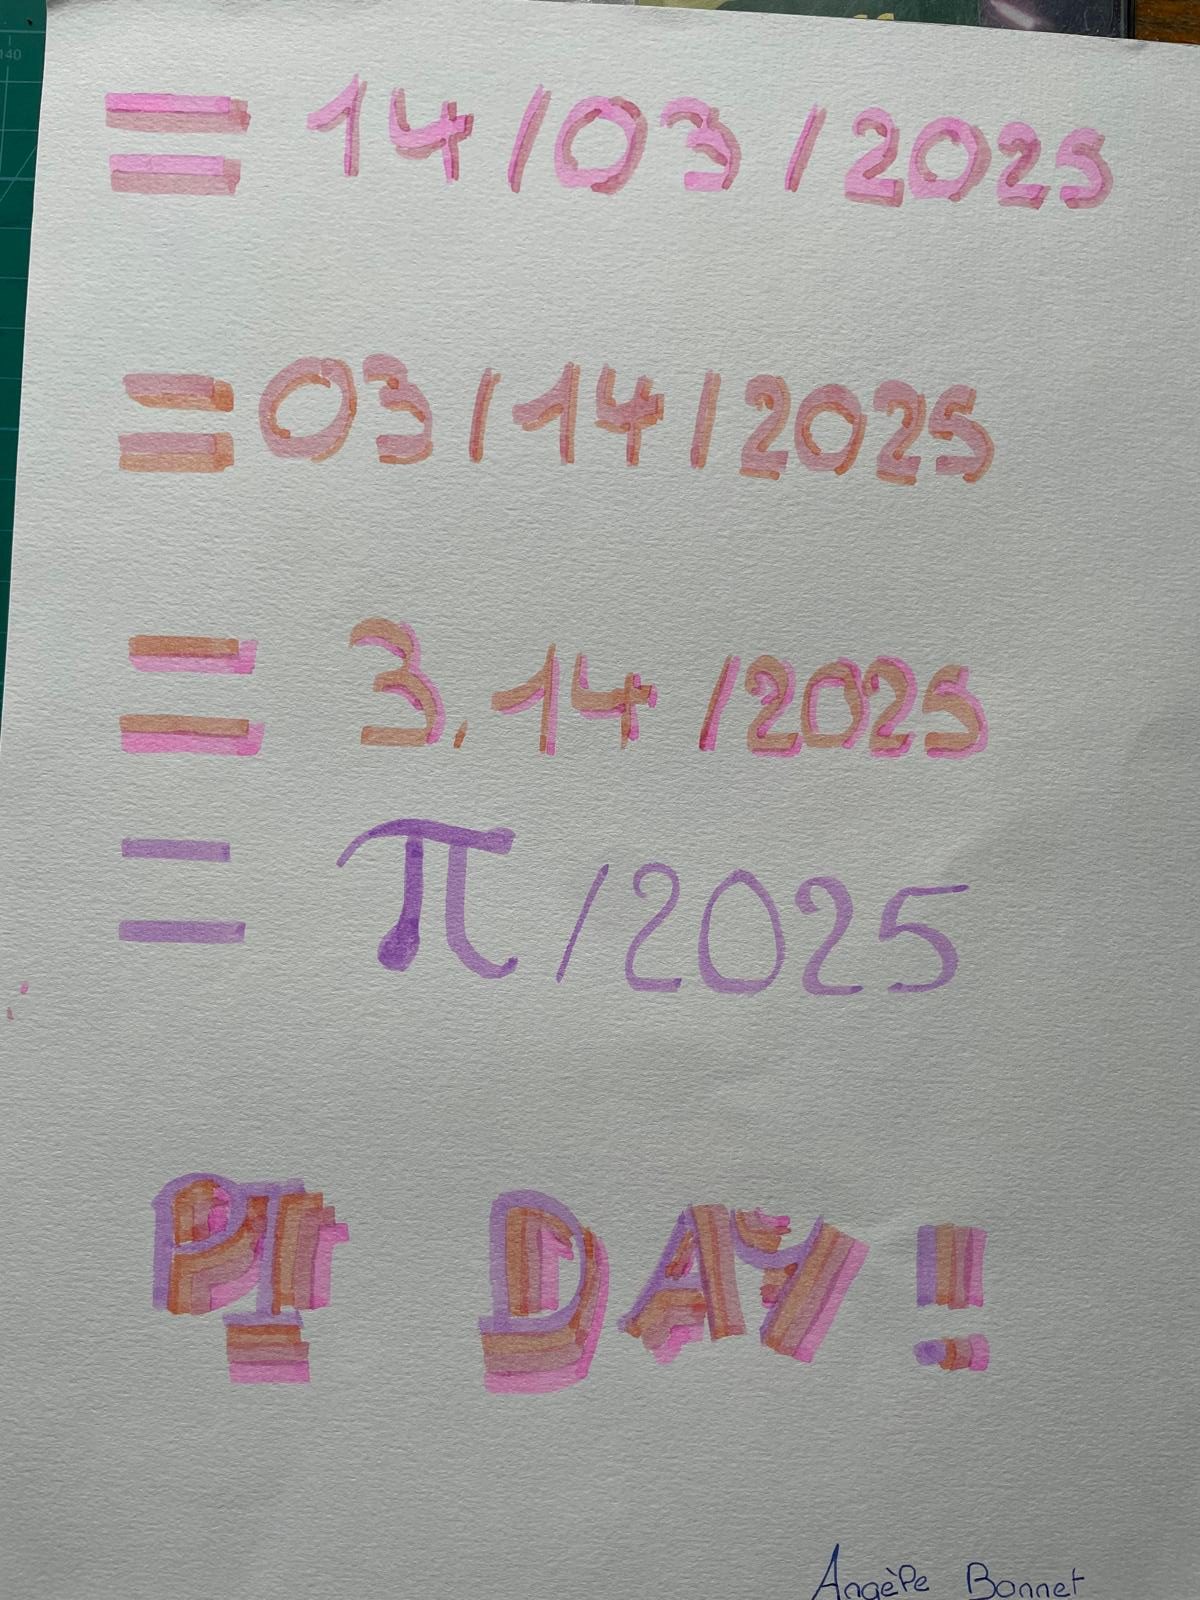 = 14/03/2025
= 03/14/2025
= 3.14/2025
= π/2025
PI DAY!
Angèle Bonnet
140